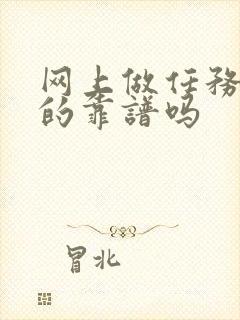 网上做任务
的靠譜吗
冒北